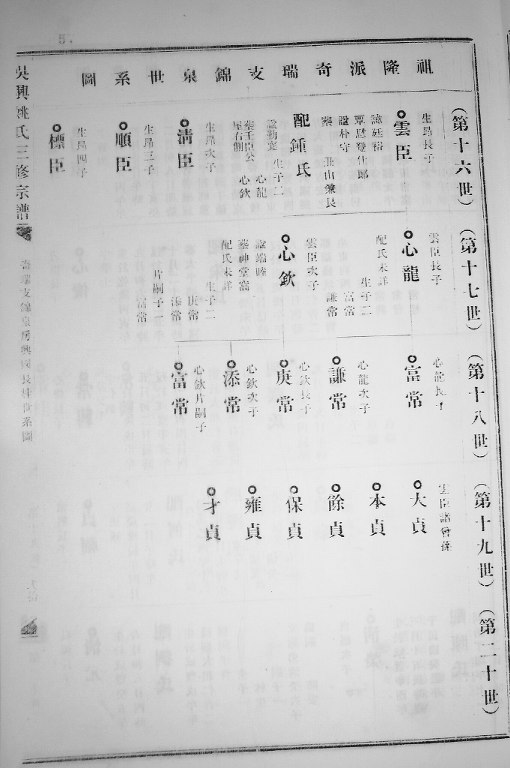 祖隆派奇瑞支錦泉世系圖
(第十六世)
生昂長子
雲臣
諡朴守
配鍾氏
生子二
心龍
心欽
生昂次子
清臣
生昂三子
順臣
生昂四子
標臣
(第十七世)
雲臣長子
心龍
配氏未詳
生子二
富常
謙常
雲臣次子
心欽
配氏未詳
生子二
庚常
添常
片嗣子一
富常
(第十八世)
心龍長子
富常
心龍次子
謙常
心欽長子
庚常
心欽次子
添常
心欽片嗣子
富常
(第十九世)
雲臣諸曾孫
大貞
本貞
餘貞
保貞
雍貞
才貞
(第二十世)
吳興姚氏三修宗譜